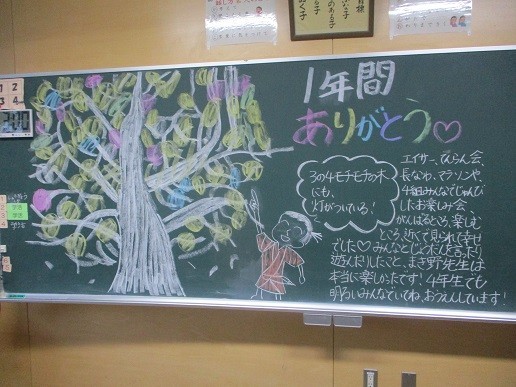 1年間
ありがとう♡
3の4モチモチの木
にも、
灯がついている!
エイサー、てんらん会、
長なわ、マラソンや、
4組みんなでじゅんび
したお楽しみ会、
がんばるところ、楽しむ
ところ、近くで見られて幸せ
でした♡みんなとじょうだんを言ったり
遊んだりしたこと、まき野先生は
本当に楽しかったです!4年生でも
明るいみんなでいてね。おうえんしています!
1 2
3 4